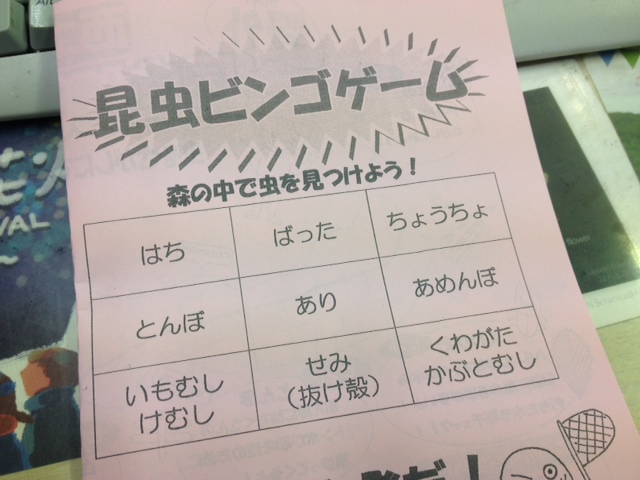 昆虫ビンゴゲーム
森の中で虫を見つけよう!
はち
ばった
ちょうちょ
とんぼ
あり
あめんぼ
いもむし
けむし
せみ
(抜け殻)
くわがた
かぶとむし
VAL
flower